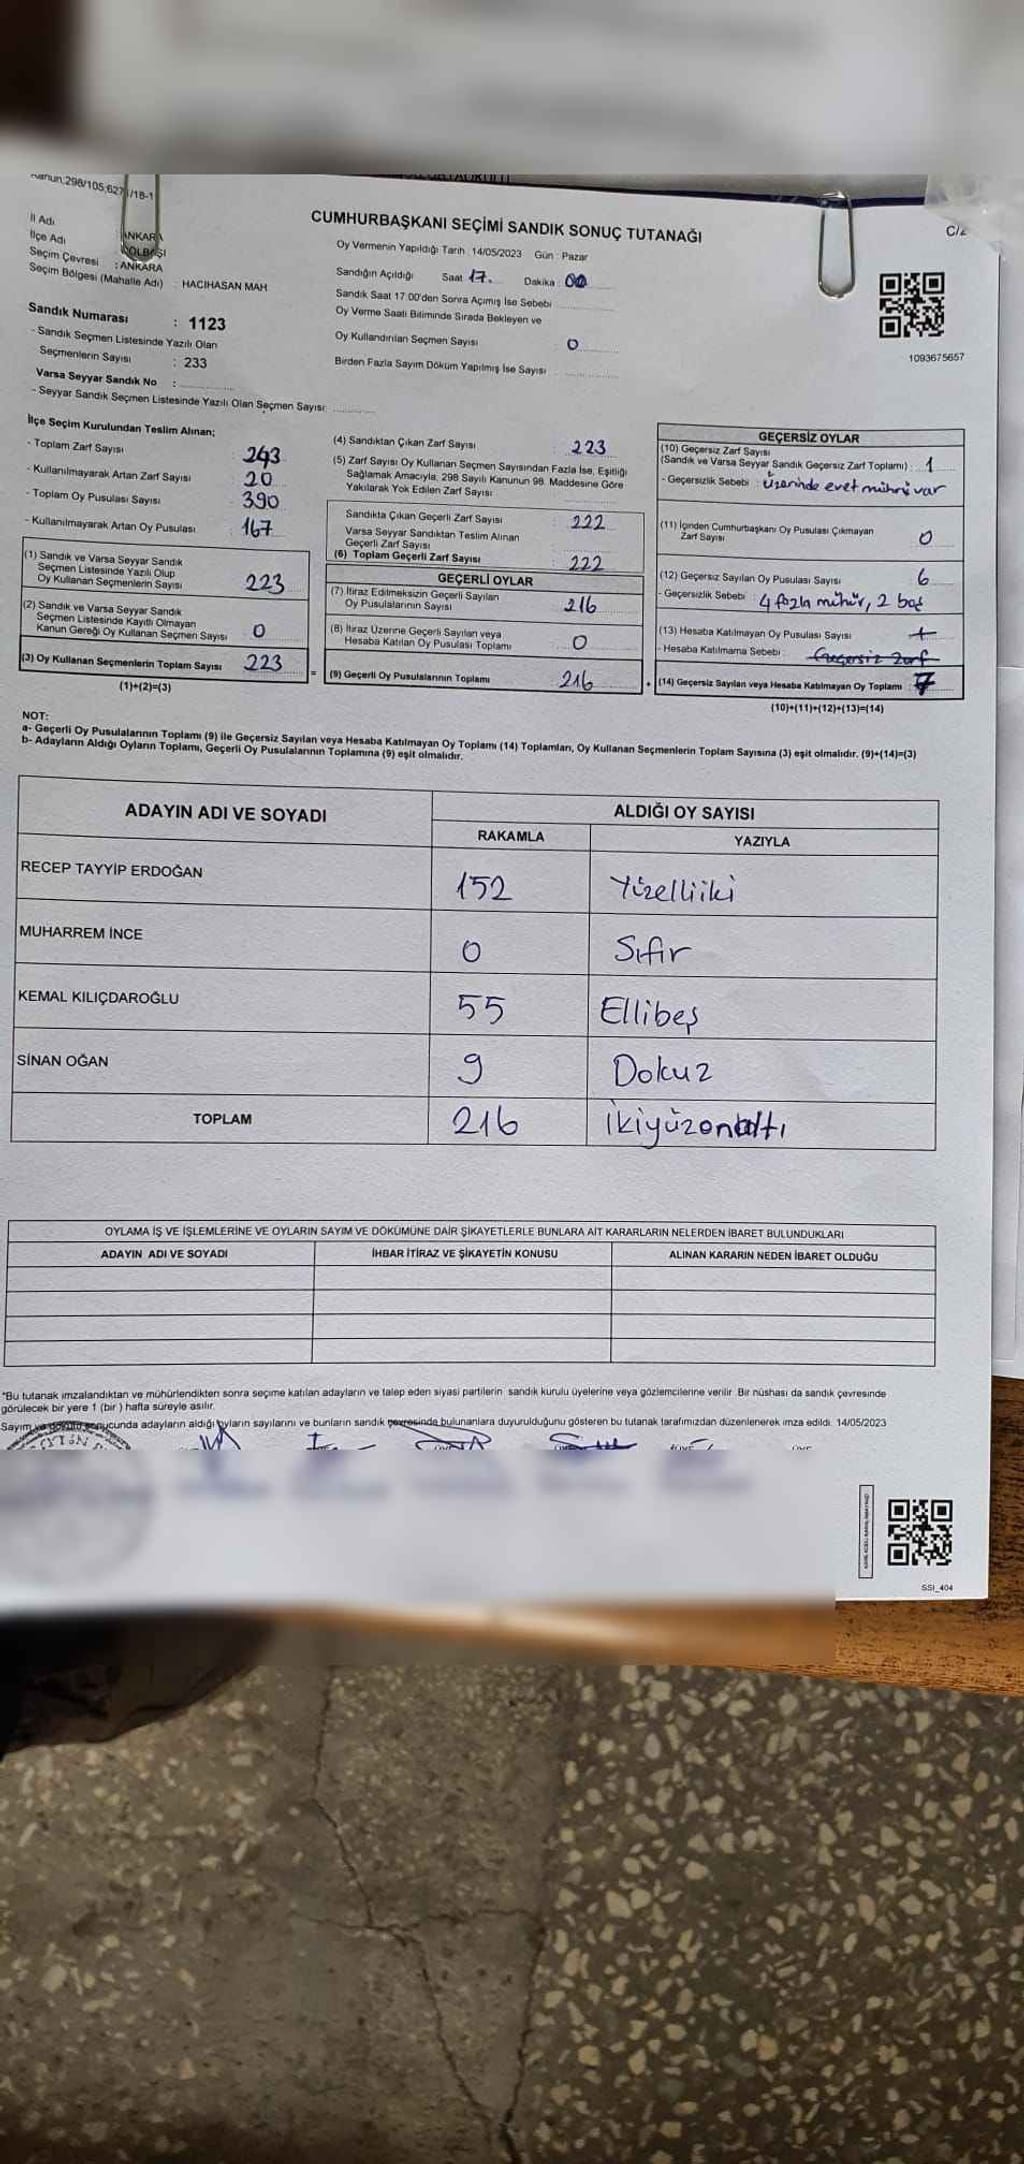 298/105,627 /18-1
CUMHURBAŞKANI SEÇİMİ SANDIK SONUÇ TUTANAĞI
İl Adı : ANKARA
İlçe Adı : GÖLBAŞI
Seçim Çevresi : ANKARA
Seçim Bölgesi (Mahalle Adı) : HACIHASAN MAH
Oy Vermenin Yapıldığı Tarih : 14/05/2023 Gün : Pazar
Sandığın Açıldığı Saat 17. Dakika : 00
Sandık Saat 17.00'den Sonra Açımış İse Sebebi
Oy Verme Saati Bitiminde Sırada Bekleyen ve
Oy Kullandırılan Seçmen Sayısı 0
Birden Fazla Sayım Döküm Yapılmış İse Sayısı
1093675657
Sandık Numarası : 1123
- Sandık Seçmen Listesinde Yazılı Olan
Seçmenlerin Sayısı : 233
Varsa Seyyar Sandık No :
- Seyyar Sandık Seçmen Listesinde Yazılı Olan Seçmen Sayısı:
İlçe Seçim Kurulundan Teslim Alınan;
- Toplam Zarf Sayısı : 243
- Kullanılmayarak Artan Zarf Sayısı : 20
- Toplam Oy Pusulası Sayısı : 390
- Kullanılmayarak Artan Oy Pusulası : 167
(1) Sandık ve Varsa Seyyar Sandık
Seçmen Listesinde Yazılı Olup
Oy Kullanan Seçmenlerin Sayısı : 223
(2) Sandık ve Varsa Seyyar Sandık
Seçmen Listesinde Kayıtlı Olmayan
Kanun Gereği Oy Kullanan Seçmen Sayısı : 0
(3) Oy Kullanan Seçmenlerin Toplam Sayısı : 223
(1)+(2)=(3)
(4) Sandıktan Çıkan Zarf Sayısı : 223
(5) Zarf Sayısı Oy Kullanan Seçmen Sayısından Fazla İse, Eşitliği
Sağlamak Amacıyla, 298 Sayılı Kanunun 98. Maddesine Göre
Yakılarak Yok Edilen Zarf Sayısı
Sandıkta Çıkan Geçerli Zarf Sayısı : 222
Varsa Seyyar Sandıktan Teslim Alınan
Geçerli Zarf Sayısı
(6) Toplam Geçerli Zarf Sayısı : 222
GEÇERLİ OYLAR
(7) İtiraz Edilmeksizin Geçerli Sayılan
Oy Pusulalarının Sayısı : 216
(8) İtiraz Üzerine Geçerli Sayılan veya
Hesaba Katılan Oy Pusulası Toplamı : 0
= (9) Geçerli Oy Pusulalarının Toplamı : 216
GEÇERSİZ OYLAR
(10) Geçersiz Zarf Sayısı
(Sandık ve Varsa Seyyar Sandık Geçersiz Zarf Toplamı) : 1
- Geçersizlik Sebebi : Üzerinde evet mührü var
(11) İçinden Cumhurbaşkanı Oy Pusulası Çıkmayan
Zarf Sayısı : 0
(12) Geçersiz Sayılan Oy Pusulası Sayısı : 6
- Geçersizlik Sebebi : 4 fazla mühür, 2 boş
(13) Hesaba Katılmayan Oy Pusulası Sayısı :
- Hesaba Katılmama Sebebi : Geçersiz Zarf
+ (14) Geçersiz Sayılan veya Hesaba Katılmayan Oy Toplamı : 7
(10)+(11)+(12)+(13)=(14)
NOT:
a- Geçerli Oy Pusulalarının Toplamı (9) ile Geçersiz Sayılan veya Hesaba Katılmayan Oy Toplamı (14) Toplamları, Oy Kullanan Seçmenlerin Toplam Sayısına (3) eşit olmalıdır. (9)+(14)=(3)
b- Adayların Aldığı Oyların Toplamı, Geçerli Oy Pusulalarının Toplamına (9) eşit olmalıdır.
ADAYIN ADI VE SOYADI
ALDIĞI OY SAYISI
RAKAMLA YAZIYLA
RECEP TAYYİP ERDOĞAN 152 Yüzelliiki
MUHARREM İNCE 0 Sıfır
KEMAL KILIÇDAROĞLU 55 Ellibeş
SİNAN OĞAN 9 Dokuz
TOPLAM 216 İkiyüzonaltı
OYLAMA İŞ VE İŞLEMLERİNE VE OYLARIN SAYIM VE DÖKÜMÜNE DAİR ŞİKAYETLERLE BUNLARA AİT KARARLARIN NELERDEN İBARET BULUNDUKLARI
ADAYIN ADI VE SOYADI İHBAR İTİRAZ VE ŞİKAYETİN KONUSU ALINAN KARARIN NEDEN İBARET OLDUĞU
*Bu tutanak imzalandıktan ve mühürlendikten sonra seçime katılan adayların ve talep eden siyasi partilerin sandık kurulu üyelerine veya gözlemcilerine verilir. Bir nüshası da sandık çevresinde
görülecek bir yere 1 (bir ) hafta süreyle asılır.
Sayım ve döküm sonucunda adayların aldığı oyların sayılarını ve bunların sandık çevresinde bulunanlara duyurulduğunu gösteren bu tutanak tarafımızdan düzenlenerek imza edildi. 14/05/2023
SSI_404